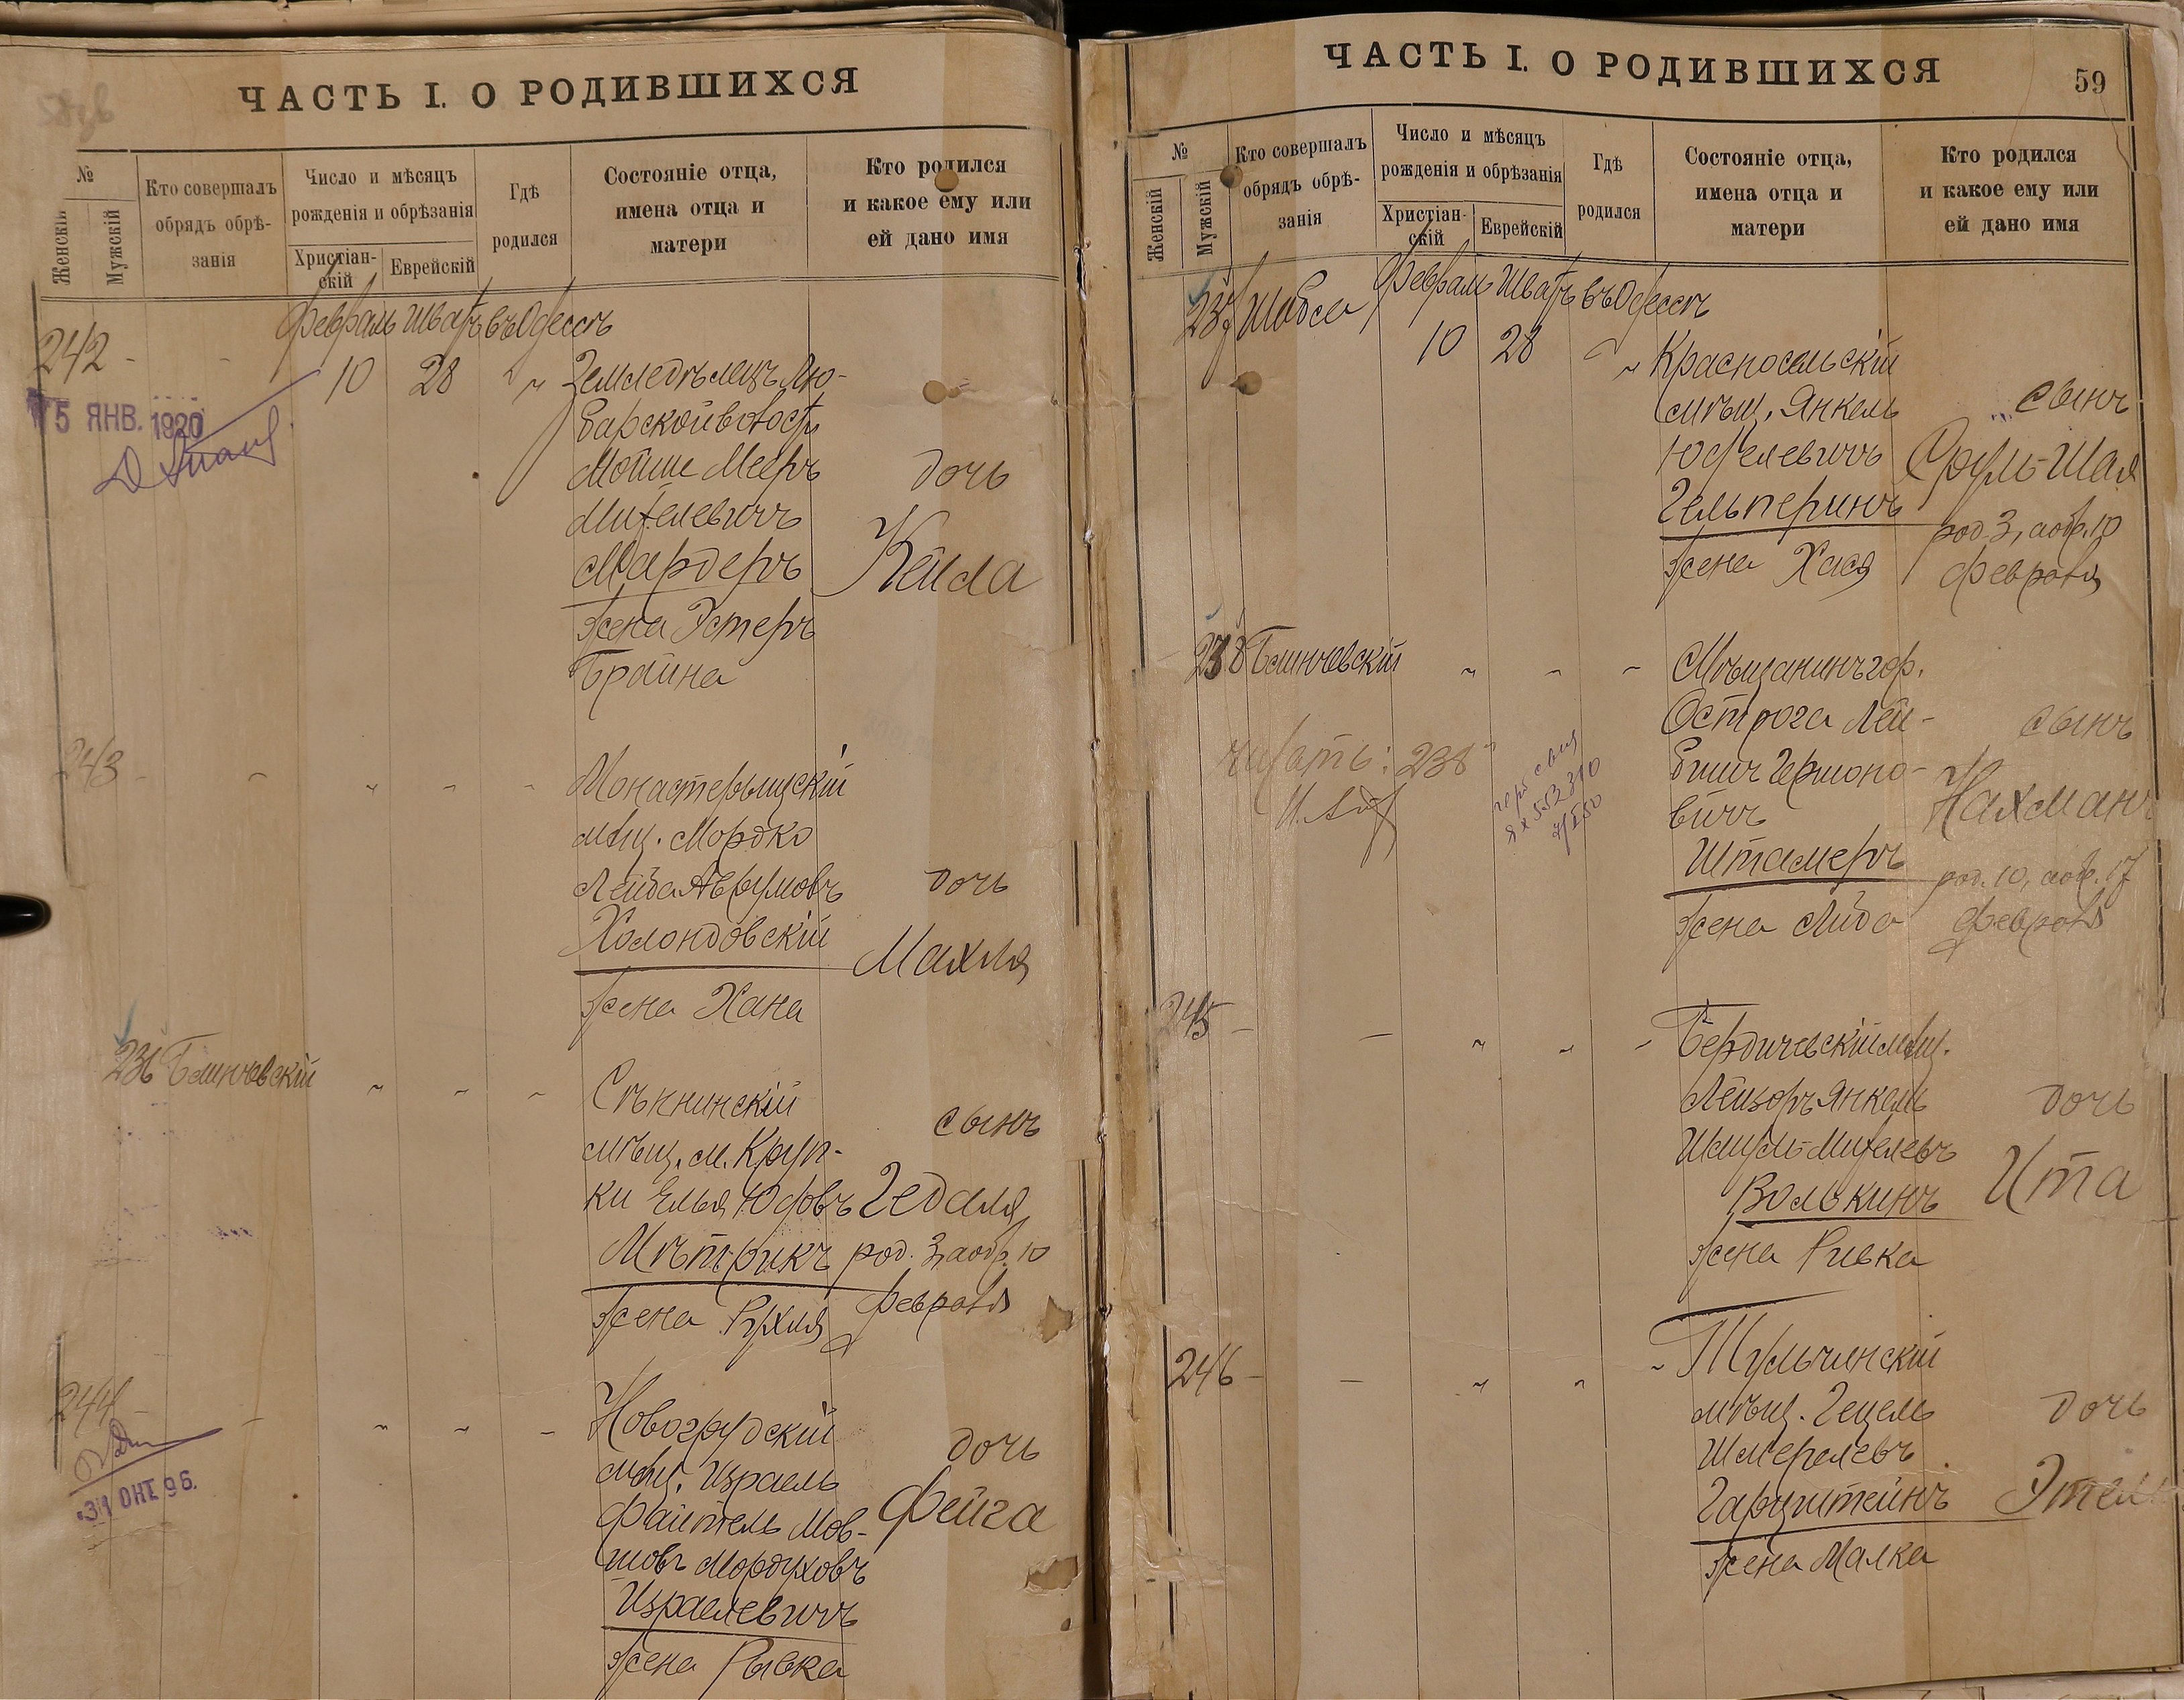 ЧАСТЬ I. О РОДИВШИХСЯ
№
Женскій
Мужскій
Кто совершалъ
обрядъ обрѣ-
занія
Число и мѣсяцъ
рожденія и обрѣзанія
Христіан-
скій
Еврейскій
Гдѣ
родился
Состояніе отца,
имена отца и
матери
Кто родился
и какое ему или
ей дано имя
Февраль Шватъ въ Одессѣ
242 - - 10 28 " "
Земледѣлецъ Лю-
барской волости
Мойше Мееръ
Мардеръ
жена Эстеръ
Брайна
дочь
Кейла
5 ЯНВ. 1920
243 - - " " "
Монастырищскій
мѣщ. Мордко
Лейба Аврумовъ
Холондовскій
жена Хана
дочь
Махля
236 Блинчевскій " " "
мѣщ. м. Круп-
ки Элья Юдовъ
Мѣтрикъ
жена Рухля
сынъ
Гедаля
род. 3, а обр. 10
февраля
244 - - " " "
Новогрудскій
мѣщ. Израель
Файтель Мов-
шовъ Мордуховъ
Израелевичъ
жена Рывка
дочь
Фейга
31 ОКТ. 96.
ЧАСТЬ I. О РОДИВШИХСЯ
59
№
Женскій
Мужскій
Кто совершалъ
обрядъ обрѣ-
занія
Число и мѣсяцъ
рожденія и обрѣзанія
Христіан-
скій
Еврейскій
Гдѣ
родился
Состояніе отца,
имена отца и
матери
Кто родился
и какое ему или
ей дано имя
Февраль Шватъ въ Одессѣ
237 Шабса 10 28 " "
Красносельскій
мѣщ. Янкель
Гельперинъ
жена Хася
сынъ
Сруль-Шая
род. 3, а обр. 10
февраля
238 Блинчевскій " " "
Мѣщанинъ гор.
Острога Лей-
бишъ Гершоно-
вичъ
Штамеръ
жена Либа
сынъ
Нахманъ
род. 10, а обр. 17
февраля
читать: 238
245 - - " " "
Бердичевскій мѣщ.
Лейзоръ Янкель
Волькинъ
жена Ривка
дочь
Ита
246 - - " " "
Тульчинскій
мѣщ. Гецель
Шмерелевъ
Гарцштейнъ
жена Малка
дочь
Этель